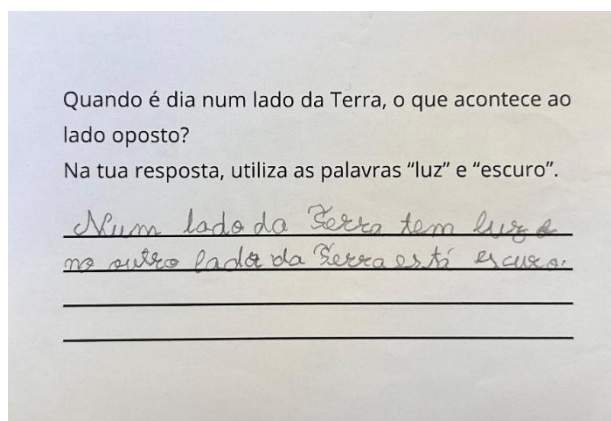 Quando é dia num lado da Terra, o que acontece ao
lado oposto?
Na tua resposta, utiliza as palavras “luz” e “escuro”.
Num lado da Terra tem luz e
no outro lado da Terra está escuro.